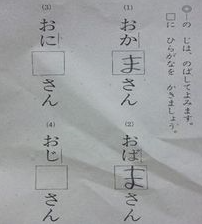 ◎｜の じは、のばして よみます。
□に ひらがなを かきましょう。
(1) おかまさん
(2) おばまさん
(3) おに□さん
(4) おじ□さん